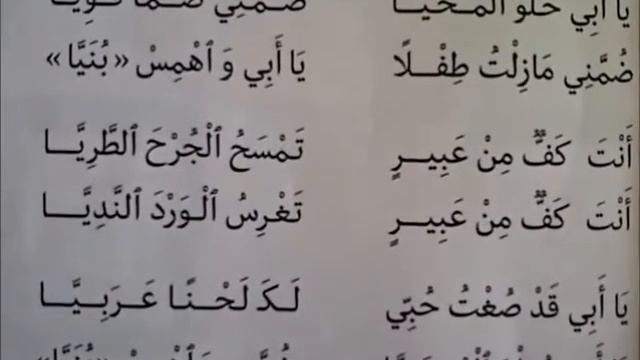 يَا أَبِي حُلْوَ الْمُحَيَّا ضُمَّنِي ضَمًّا قَوِيًّا
ضُمَّنِي مَازِلْتُ طِفْلًا يَا أَبِي وَ ٱهْمِسْ «بُنَيَّا»
أَنْتَ كَفٌّ مِنْ عَبِيرٍ تَمْسَحُ ٱلْجُرْحَ ٱلطَّرِيَّا
أَنْتَ كَفٌّ مِنْ عَبِيرٍ تَغْرِسُ ٱلْوَرْدَ ٱلنَّدِيَّا
يَا أَبِي قَدْ صُغْتُ حُبِّي لَكَ لَحْنًا عَرَبِيَّا